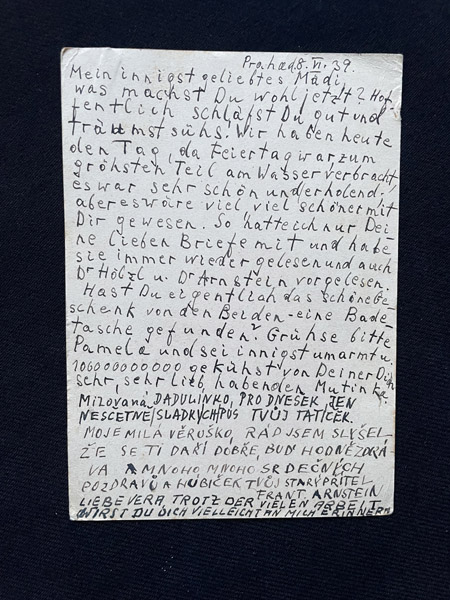 Prag had 8. VI. 39.
Mein innigst geliebtes Mädi,
was machst Du wohl jetzt? Hof-
fentlich schläfst Du gut und
träumst sühs. Wir haben heute
den Tag, da Feiertag war zum
gröhsten Teil am Wasser verbracht,
es war sehr schön und erholend.
aber es wäre viel viel schöner mit
Dir gewesen. So hatte ich nur Dei-
ne lieben Briefe mit und habe
sie immer wieder gelesen und auch
Dr Hölzl u. Dr Arnstein vorgelesen.
Hast Du eigentlich das schöne Ge-
schenk von den Beiden - eine Bade-
tasche gefunden? Grühse bitte
Pamela und sei innigst umarmt u.
1000000000000 gekühst von Deiner Dich
sehr, sehr lieb, habenden Mutinka.
MILOVANÁ DADULINKO, PRO DNESEK JEN
NESČETNĚ SLADKÝCH PUS TVŮJ TATÍČEK.
MOJE MILÁ VĚRUŠKO, RÁD JSEM SLYŠEL
ŽE SE TI DAŘÍ DOBŘE, BUĎ HODNĚ ZDRÁ
VA A MNOHO, MNOHO SRDEČNÝCH
POZDRAVŮ A HUBIČEK TVŮJ STARÝ PŘÍTEL
FRANT. ARNSTEIN
LIEBE VERA, TROTZ DER VIELEN ARBEIT
WIRST DU DICH VIELLEICHT AN MICH ERINNERN